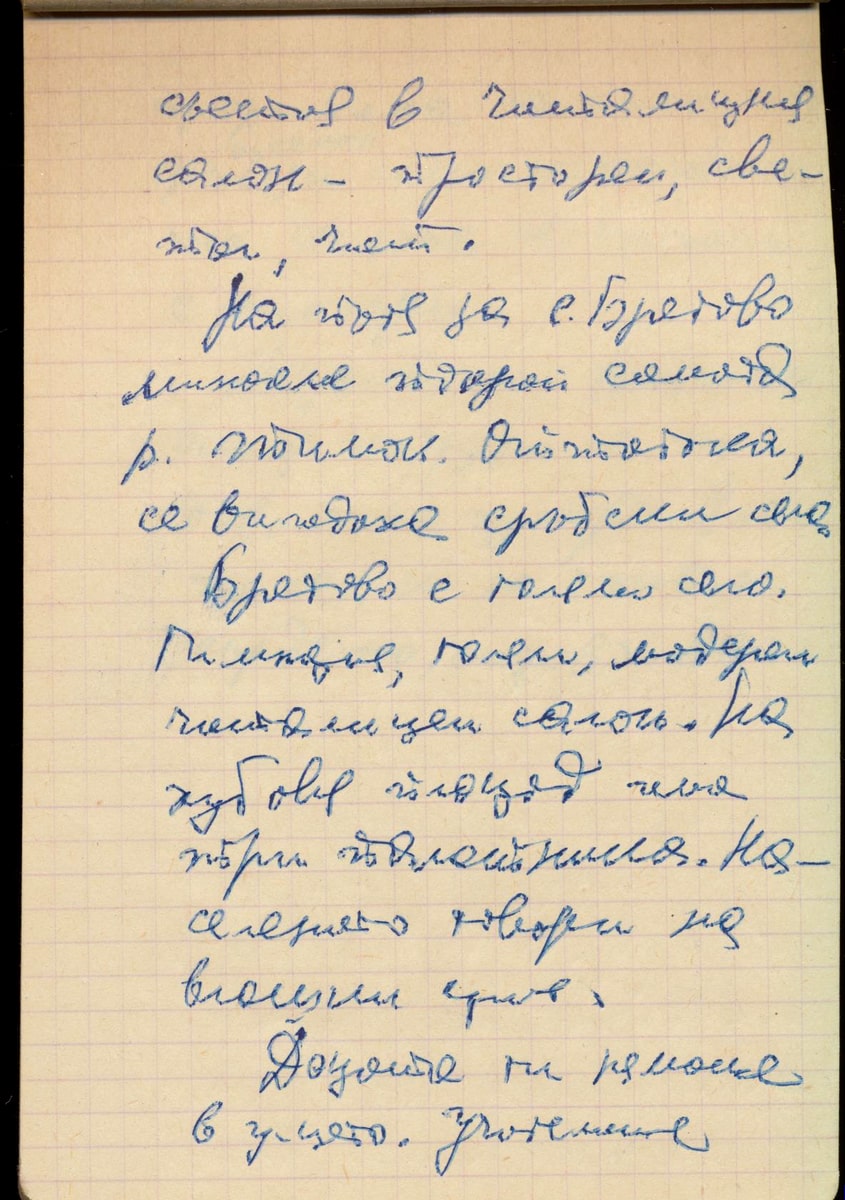 състоя в читалищния
салон – просторен, све-
тъл, чист.
На път за с. Брегово
минахме покрай самата
р. Тимок. Оттатък,
се виждаха сръбски села.
Брегово е голямо село.
Гимназия, голям, модерен
читалищен салон. На
хубавия площад има
три паметника. На-
селението говори на
влашки език.
Децата ги нямаше
в у-щето. Учителите